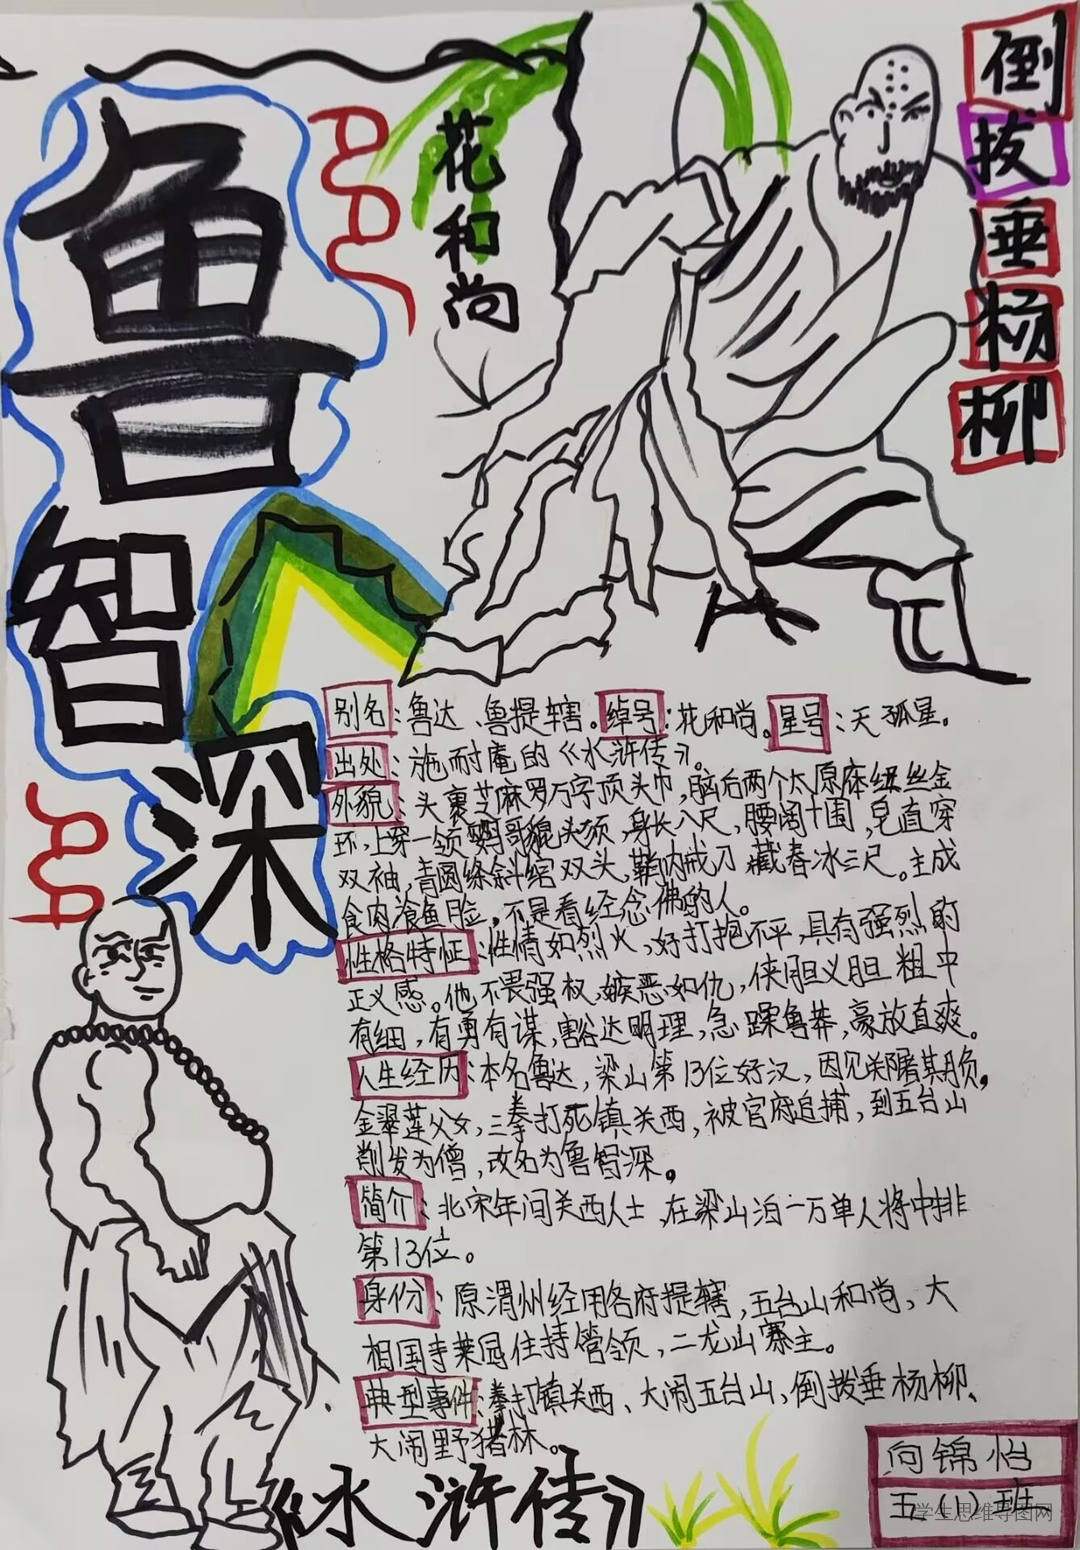 鲁智深
花和尚
倒拔垂杨柳
别名：鲁达、鲁提辖。绰号：花和尚。星号：天孤星。
出处：施耐庵的《水浒传》。
外貌：头裹芝麻罗万字顶头巾，脑后两个太原府纽丝金
环，上穿一领鹦哥绿战袍，身长八尺，腰阔十围，皂直穿
双袖，青圆绦斜绾双头，鞘内戒刀藏春冰三尺。主成
食肉飡鱼脸，不是看经念佛的人。
性格特征：性情如烈火，好打抱不平，具有强烈的
正义感。他不畏强权，嫉恶如仇，侠肝义胆粗中
有细，有勇有谋，豁达明理，急躁鲁莽，豪放直爽。
人生经历：本名鲁达，梁山第13位好汉，因见郑屠其负，
金翠莲父女，三拳打死镇关西，被官府追捕，到五台山
削发为僧，改名为鲁智深。
简介：北宋年间关西人士，在梁山泊一万单人将中排
第13位。
身份：原渭州经用各府提辖，五台山和尚，大
相国寺菜园住持管领，二龙山寨主。
典型事件：拳打镇关西、大闹五台山，倒拨垂杨柳、
大闹野猪林。
《水浒传》
向锦怡
五（1）班
学生思维导图网